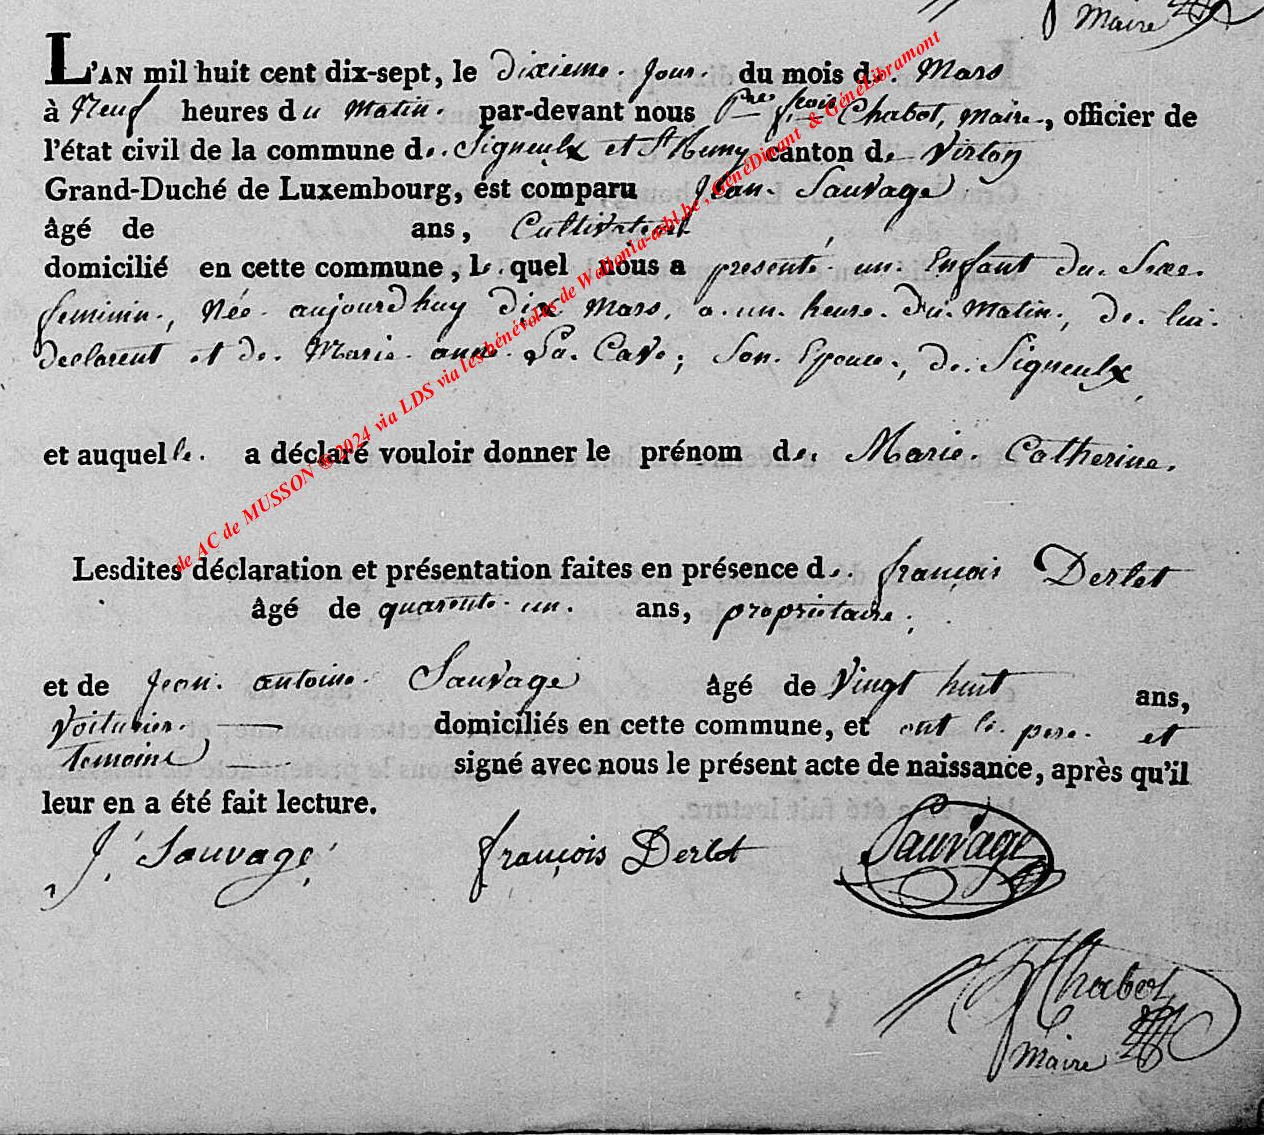 Maire
L'AN mil huit cent dix-sept, le dixieme jour du mois de Mars
à Neuf heures du Matin par-devant nous Pre frois Chabot, Maire, officier de
l'état civil de la commune de Signeulx et St Remy canton de Virton
Grand-Duché de Luxembourg, est comparu Jean Sauvage
âgé de ans, Cultivateur
domicilié en cette commune, le quel nous a presenté un Enfant du Sexe
feminin, Née aujourdhuy dix Mars, a un heure du Matin, de lui
declarent et de Marie anne La Cave, Son Epouse, de Signeulx
et auquelle a déclaré vouloir donner le prénom de Marie Catherine.
Lesdites déclaration et présentation faites en présence de françois Derlet
âgé de quarente un ans, propriétaire,
et de jean antoine Sauvage âgé de Vingt huit ans,
Voiturier domiciliés en cette commune, et ont le pere et
temoins signé avec nous le présent acte de naissance, après qu'il
leur en a été fait lecture.
J. Sauvage françois Derlet Sauvage
Chabot
Maire
de AC de MUSSON ©2024 via LDS via les bénévoles de Wallonia-asbl.be, GénéDinant & GénéLibramont